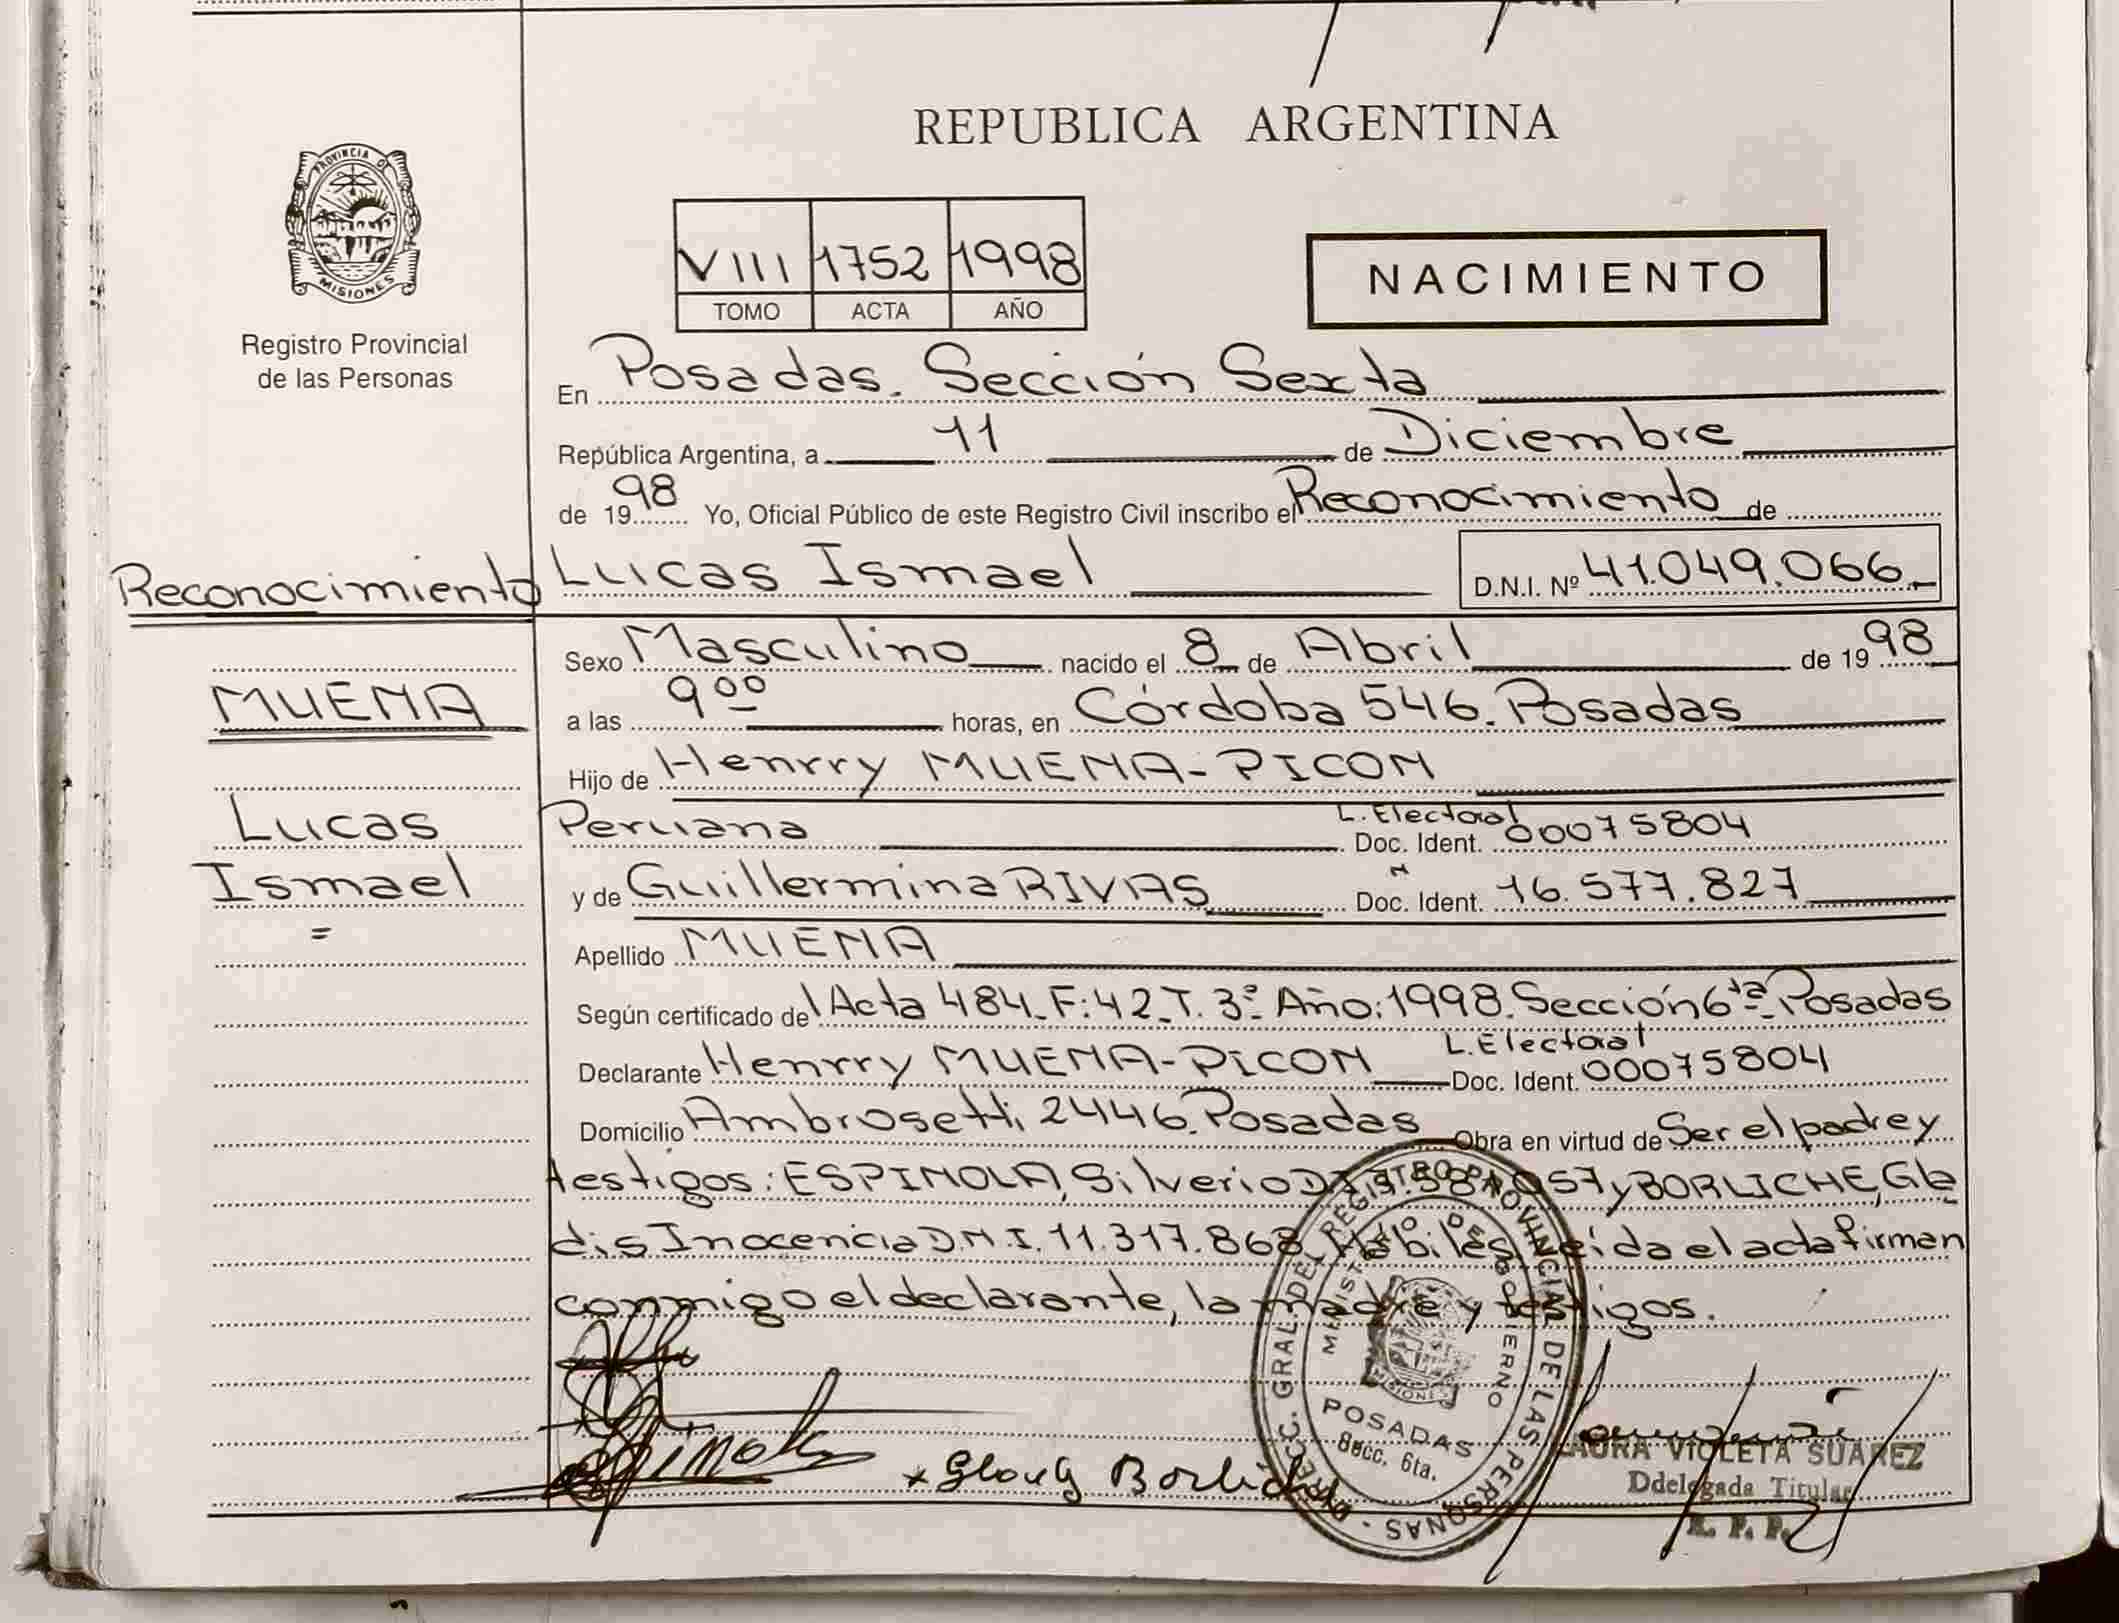 REPUBLICA ARGENTINA
PROVINCIA DE
MISIONES
Registro Provincial
de las Personas
VIII 1752 1998
TOMO ACTA AÑO
NACIMIENTO
En Posadas. Sección Sexta
República Argentina, a 11 de Diciembre
de 1998 Yo, Oficial Público de este Registro Civil inscribo el Reconocimiento de
Reconocimiento
Lucas Ismael D.N.I. Nº 41.049.066
MUENA
Lucas
Ismael
Sexo Masculino nacido el 8 de Abril de 1998
a las 9 00 horas, en Córdoba 546. Posadas
Hijo de Henrry MUENA-PICON
Peruana L. Electoral Doc. Ident. 00075804
y de Guillermina RIVAS N Doc. Ident. 16.577.827
Apellido MUENA
Según certificado del Acta 484. F: 42. T. 3º Año: 1998. Sección 6ta. Posadas
Declarante Henrry MUENA-PICON L. Electoral Doc. Ident. 00075804
Domicilio Ambrosetti 2446. Posadas Obra en virtud de Ser el padre y
testigos: ESPINOLA, Silverio y BORLICHE, Gla
dis Inocencia D.N.I. 11.317.868 Hábiles. Leída el acta firman
conmigo el declarante, la madre y testigos.
DIRECC. GRAL. DEL REGISTRO PROVINCIAL DE LAS PERSONAS
MINISTERIO DE GOBIERNO
MISIONES
POSADAS
Secc. 6ta.
LAURA VIOLETA SUAREZ
Ddelegada Titular
R. P. P.